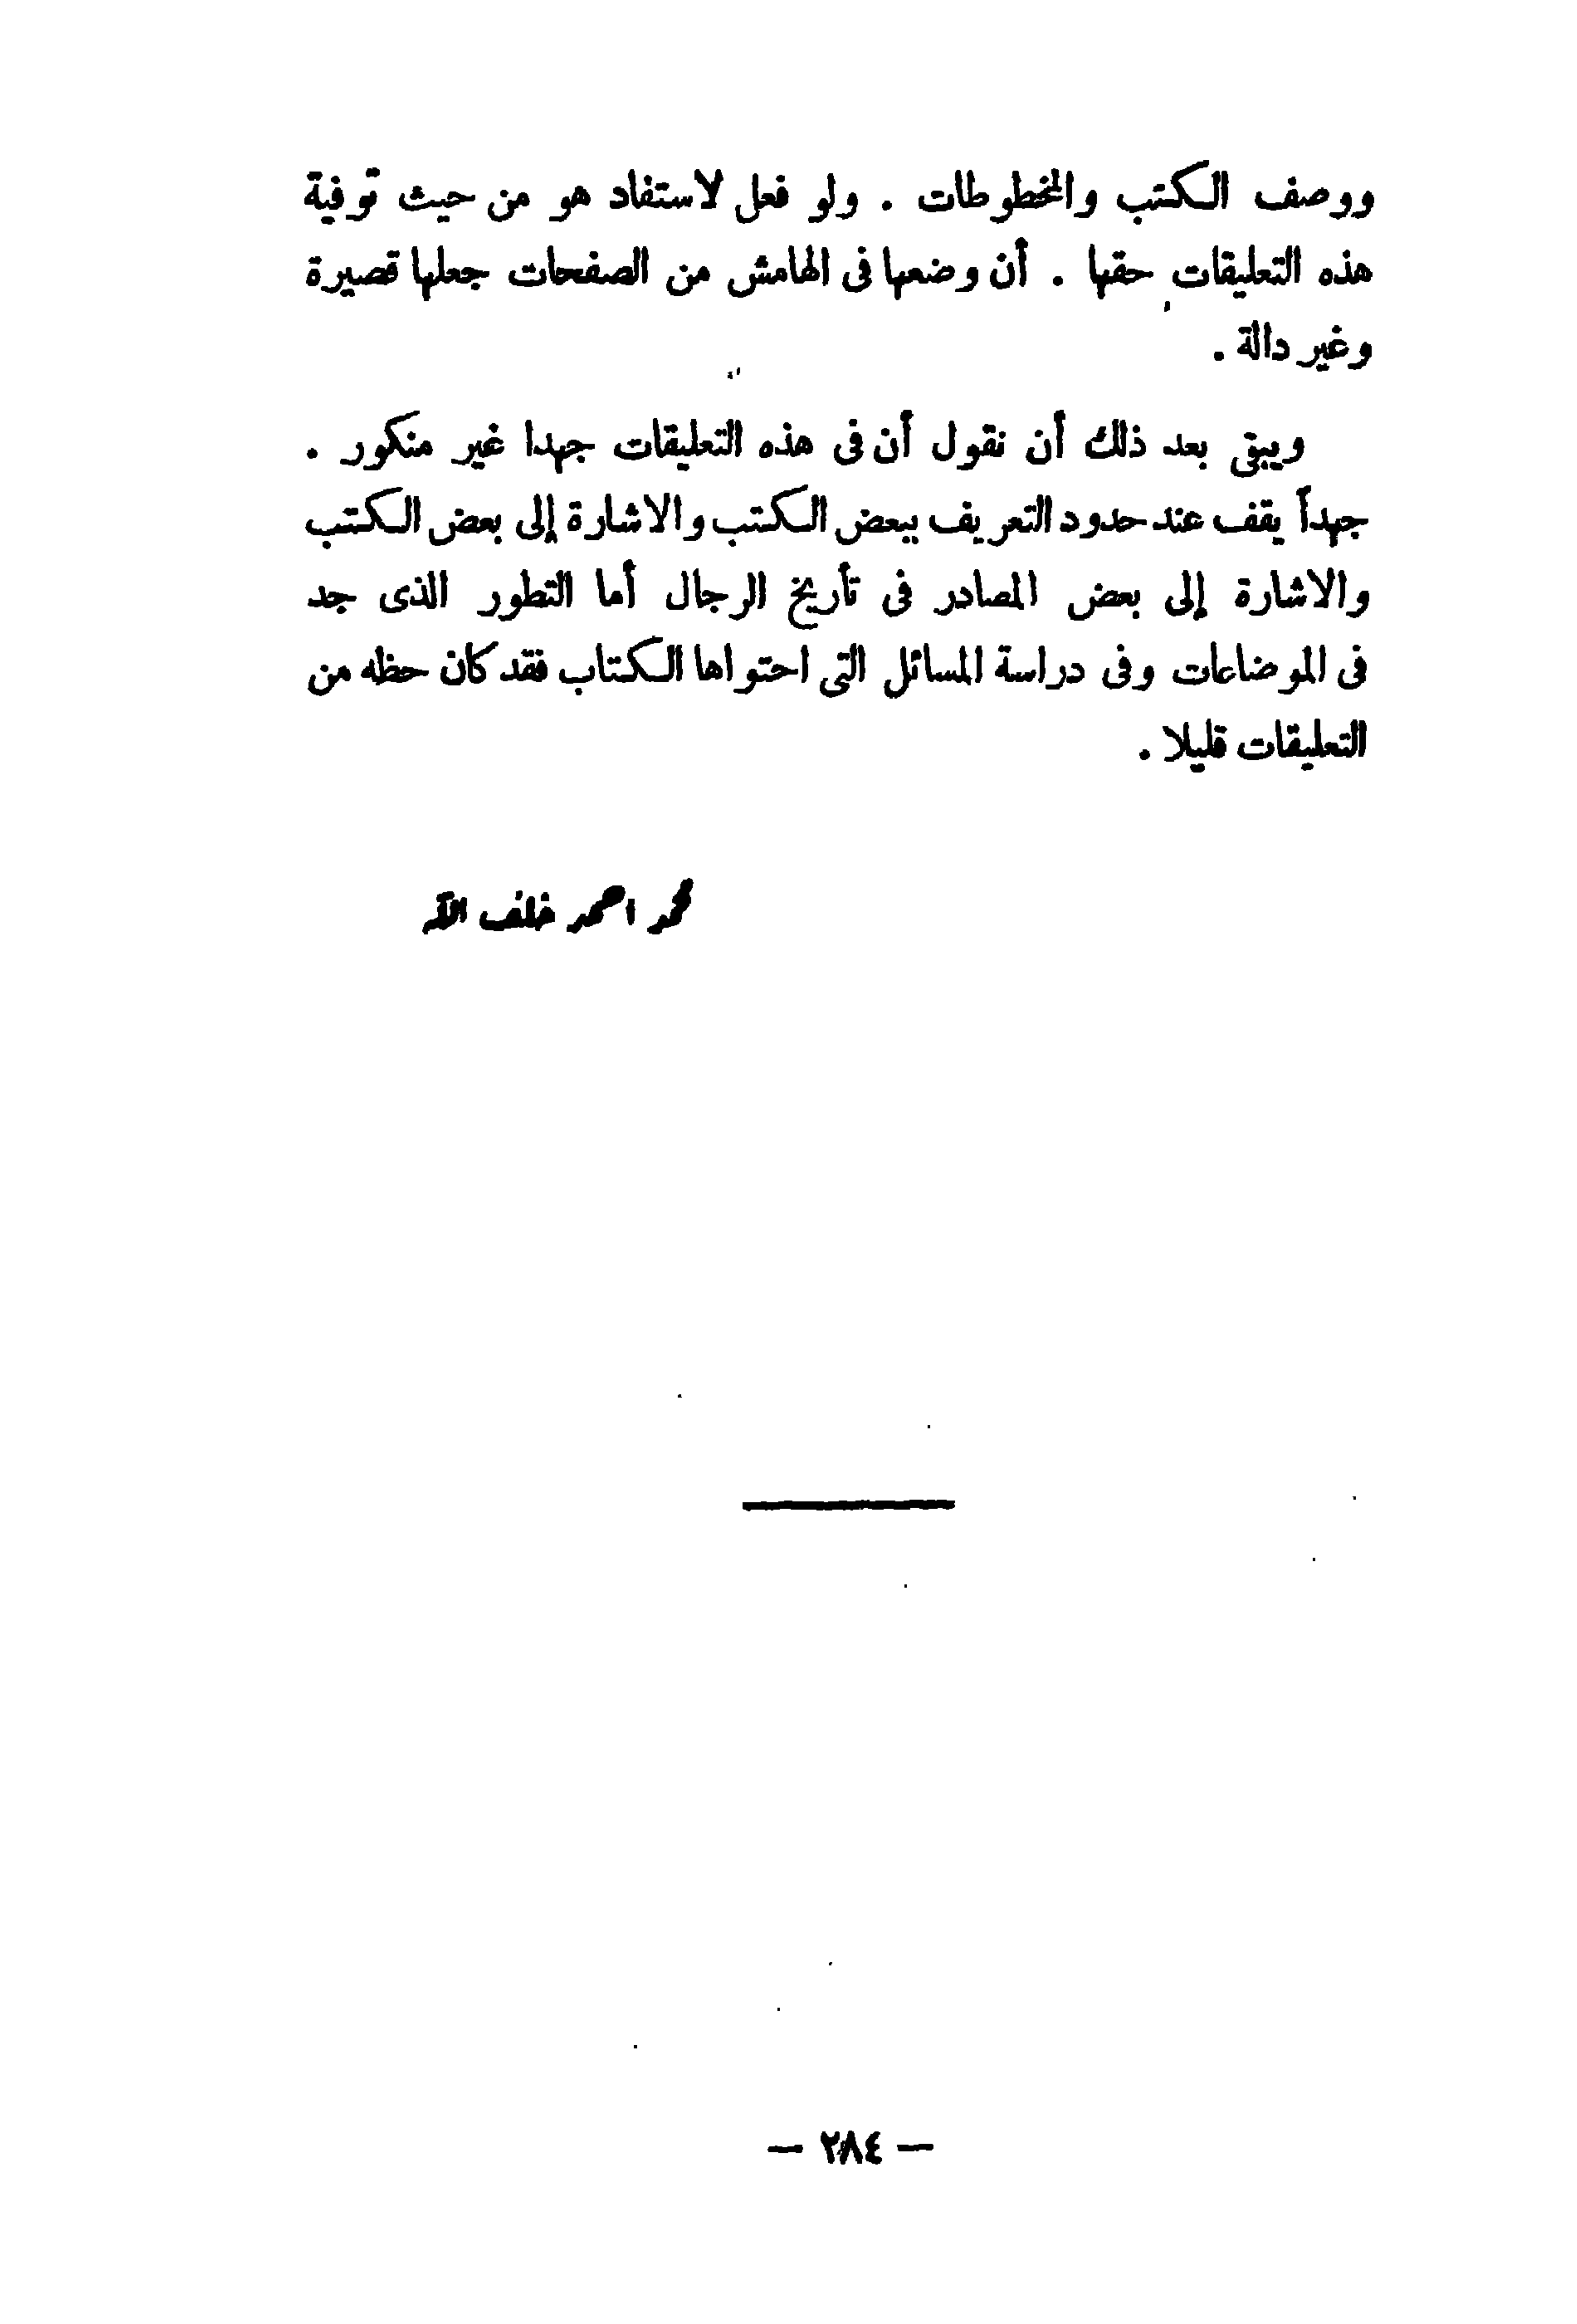 ووصف الكتب والمخطوطات . ولو فعل لاستفاد هو من حيث توفية
هذه التعليقات حقها . أن وضعها فى الهامش من الصفحات جعلها قصيرة
وغير دالة .
ويبقى بعد ذلك أن نقول أن فى هذه التعليقات جهدا غير منكور .
جهداً يقف عند حدود التعريف ببعض الكتب والاشارة إلى بعض الكتب
والاشارة إلى بعض المصادر فى تأريخ الرجال أما التطور الذى جد
فى الموضاعات وفى دراسة المسائل التى احتواها الكتاب فقد كان حظه من
التعليقات قليلا .
محمد احمد خلف الله
— ٢٨٤ —